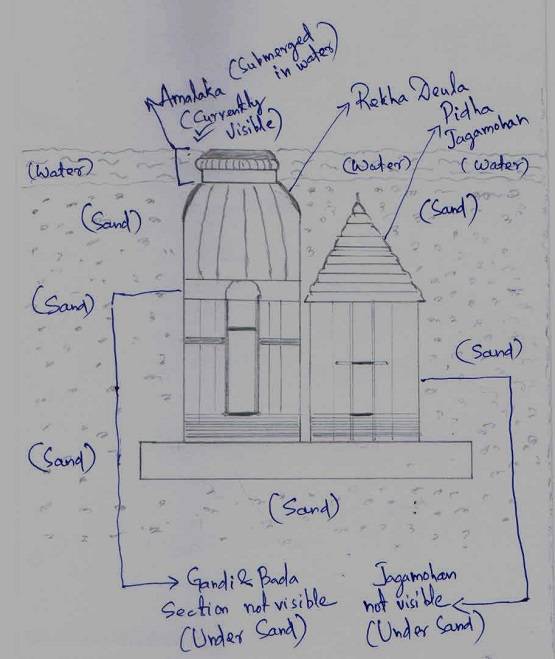 Amalaka (Submerged
in water)
(Currently
Visible)
Rekha Deula
Pidha
Jagamohan
(Water)
(Water)
(Water)
(Sand)
(Sand)
(Sand)
(Sand)
(Sand)
(Sand)
Gandi & Bada
Section not visible
(Under Sand)
Jagamohan
not visible
(Under Sand)